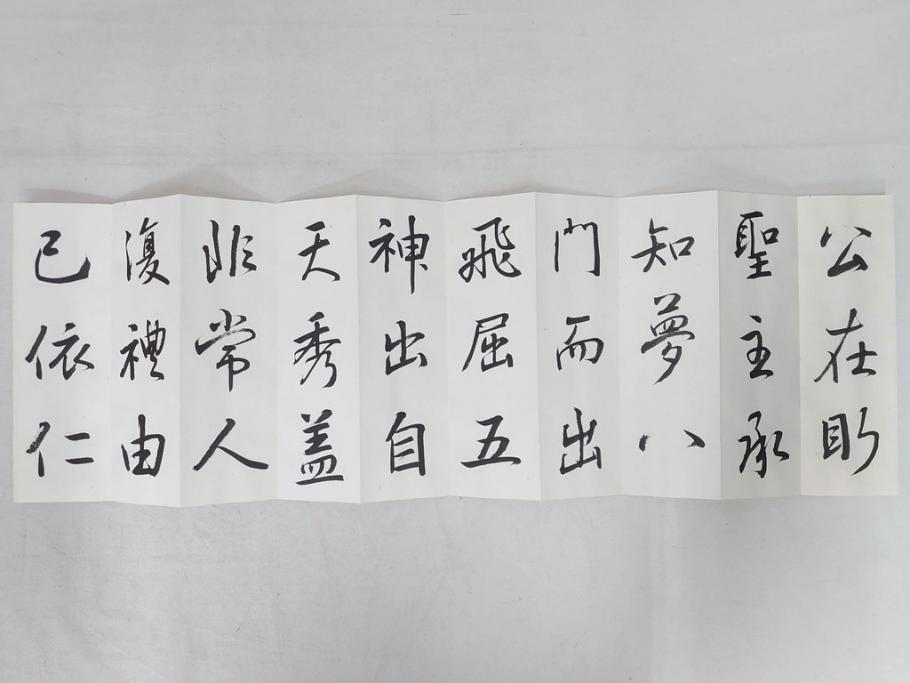 公在
聖主承
知夢八
門而出
飛屈五
神出自
天秀盖
非常人
復禮由
己依仁